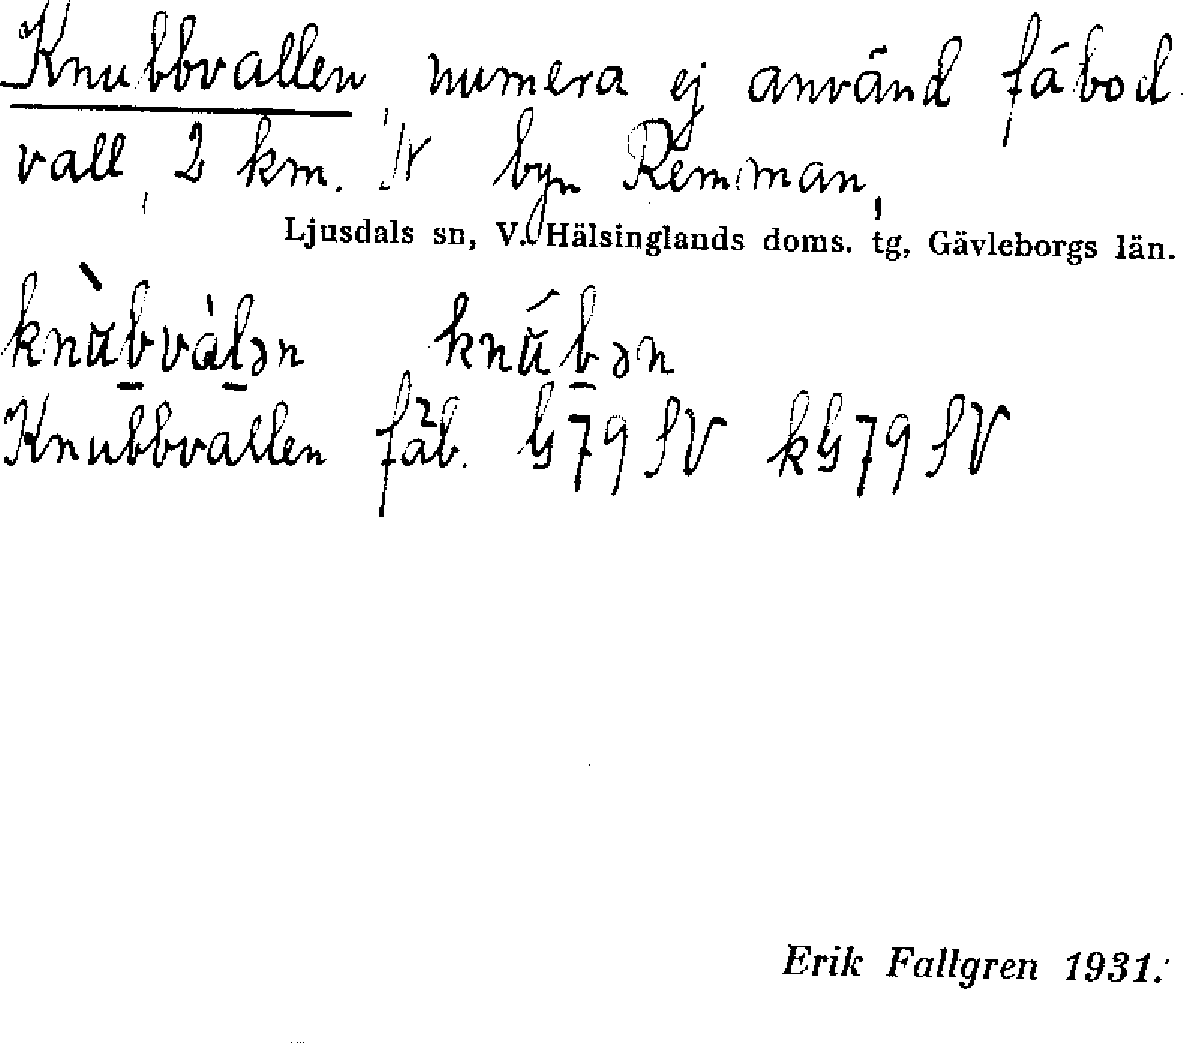 Knubbvallen, numera ej använd fäbod
vall, 2 km. N byn Remman,
Ljusdals sn, V. Hälsinglands doms. tg, Gävleborgs län.
knùbvàlən knúbən
Knubbvallen fäb. G 79 SV kG 79 SV
Erik Fallgren 1931.